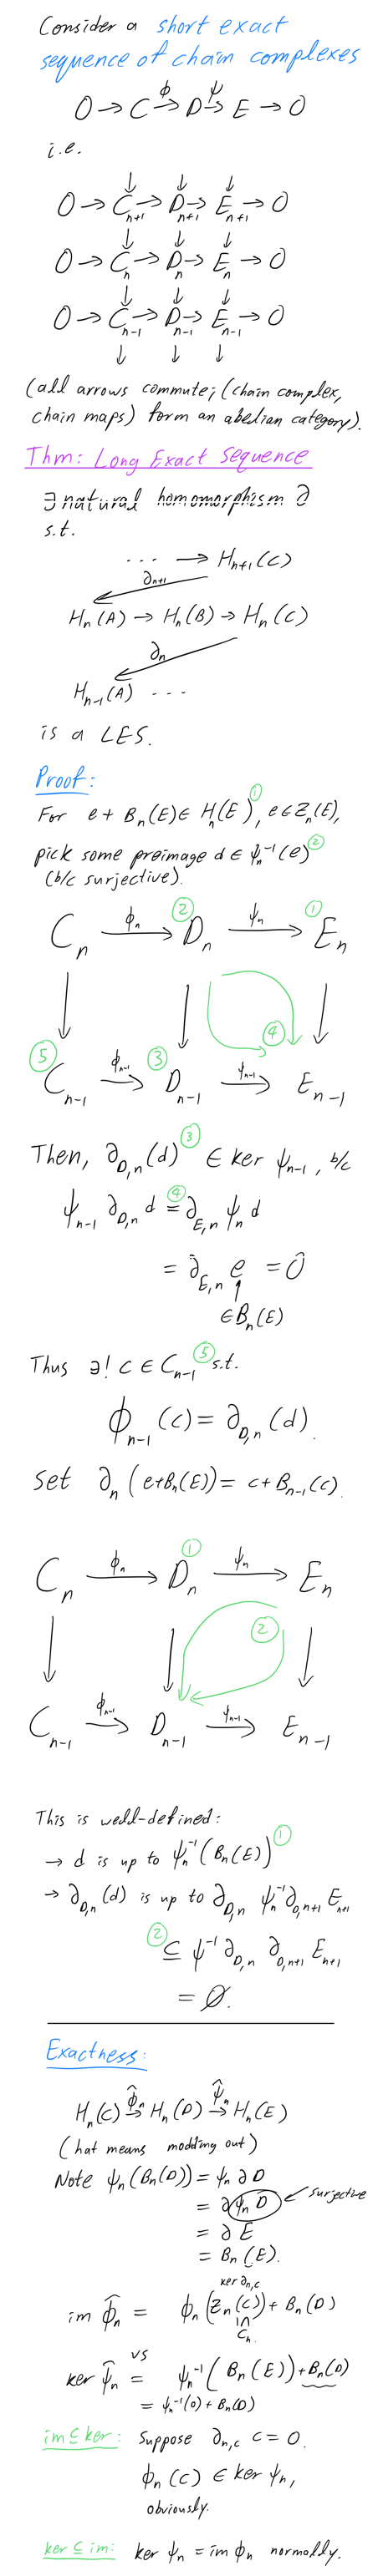 Consider a short exact
sequence of chain complexes
0 → C →ϕ D →ψ E → 0
i.e.
↓ ↓ ↓
0 → C_{n+1} → D_{n+1} → E_{n+1} → 0
↓ ↓ ↓
0 → C_n → D_n → E_n → 0
↓ ↓ ↓
0 → C_{n-1} → D_{n-1} → E_{n-1} → 0
↓ ↓ ↓
(all arrows commute; (chain complex,
chain maps) form an abelian category).
Thm: Long Exact Sequence
∃ natural homomorphism ∂
s.t.
... → H_{n+1}(C)
∂_{n+1}
H_n(A) → H_n(B) → H_n(C)
∂_n
H_{n-1}(A) ...
is a LES.
Proof:
For e + B_n(E) ∈ H_n(E)①, e ∈ Z_n(E),
pick some preimage d ∈ ψ_n^{-1}(e)②
(b/c surjective).
② ①
C_n →ϕ_n D_n →ψ_n E_n
④
⑤ ③
C_{n-1} →ϕ_{n-1} D_{n-1} →ψ_{n-1} E_{n-1}
Then, ∂_{D,n}(d)③ ∈ ker ψ_{n-1}, b/c
ψ_{n-1} ∂_{D,n} d =④ ∂_{E,n} ψ_n d
= ∂_{E,n} e = 0
∈ B_n(E)
Thus ∃! c ∈ C_{n-1}⑤ s.t.
ϕ_{n-1}(c) = ∂_{D,n}(d).
Set ∂_n(e+B_n(E)) = c + B_{n-1}(c).
①
C_n →ϕ_n D_n →ψ_n E_n
②
C_{n-1} →ϕ_{n-1} D_{n-1} →ψ_{n-1} E_{n-1}
This is well-defined:
→ d is up to ψ_n^{-1}(B_n(E))①
→ ∂_{D,n}(d) is up to ∂_{D,n} ψ_n^{-1} ∂_{D,n+1} E_{n+1}
②⊆ ψ^{-1} ∂_{D,n} ∂_{D,n+1} E_{n+1}
= ∅.
Exactness:
H_n(C) →ϕ̂_n H_n(D) →ψ̂_n H_n(E)
(hat means modding out)
Note ψ_n(B_n(D)) = ψ_n ∂ D
= ∂ ψ_n D ← surjective
= ∂ E
= B_n(E).
ker ∂_{n,C}
im ϕ̂_n = ϕ_n(Z_n(C)) + B_n(D)
⊆ C_n
vs
ker ψ̂_n = ψ_n^{-1}(B_n(E)) + B_n(D)
= ψ_n^{-1}(0) + B_n(D)
im ⊆ ker: Suppose ∂_{n,C} c = 0.
ϕ_n(c) ∈ ker ψ_n,
obviously.
ker ⊆ im: ker ψ_n = im ϕ_n normally.